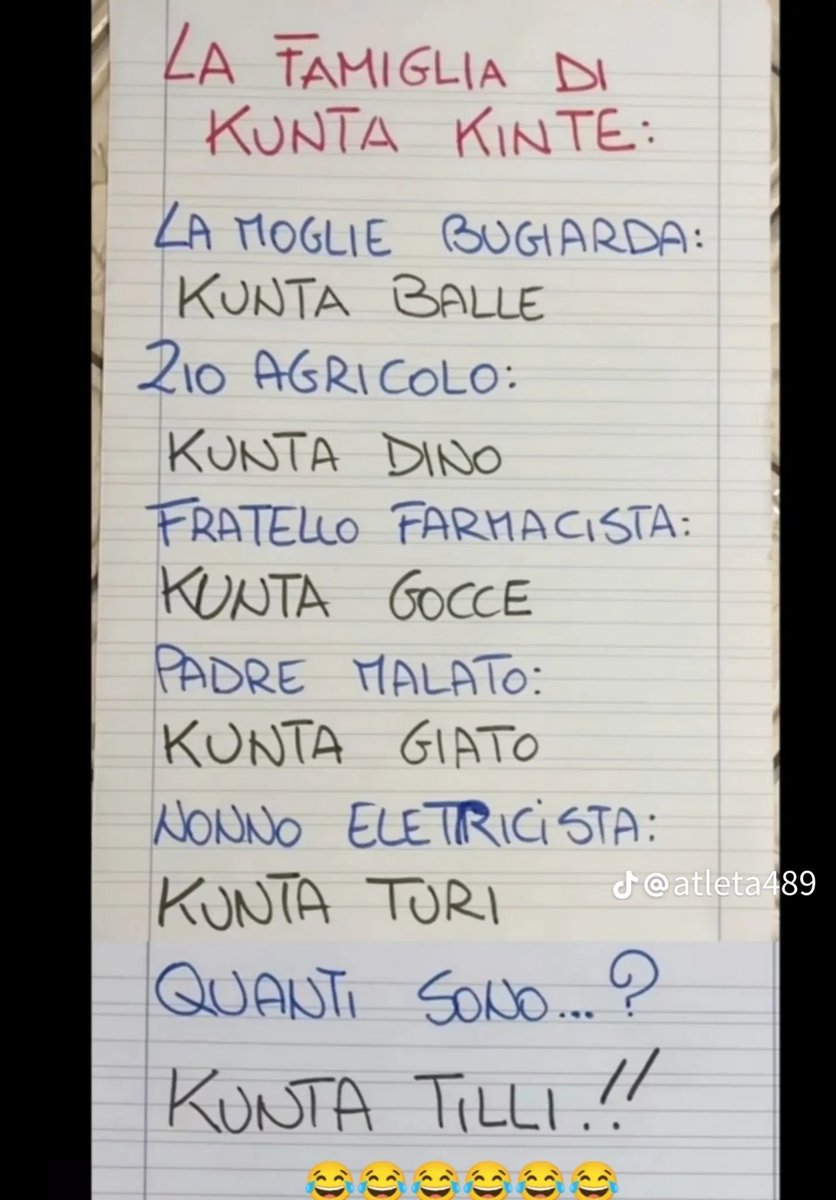 LA FAMIGLIA DI
KUNTA KINTE:
LA MOGLIE BUGIARDA:
KUNTA BALLE
ZIO AGRICOLO:
KUNTA DINO
FRATELLO FARMACISTA:
KUNTA GOCCE
PADRE MALATO:
KUNTA GIATO
NONNO ELETRICISTA:
KUNTA TURI
@atleta489
QUANTI SONO...?
KUNTA TILLI.!!
😂😂😂😂😂😂